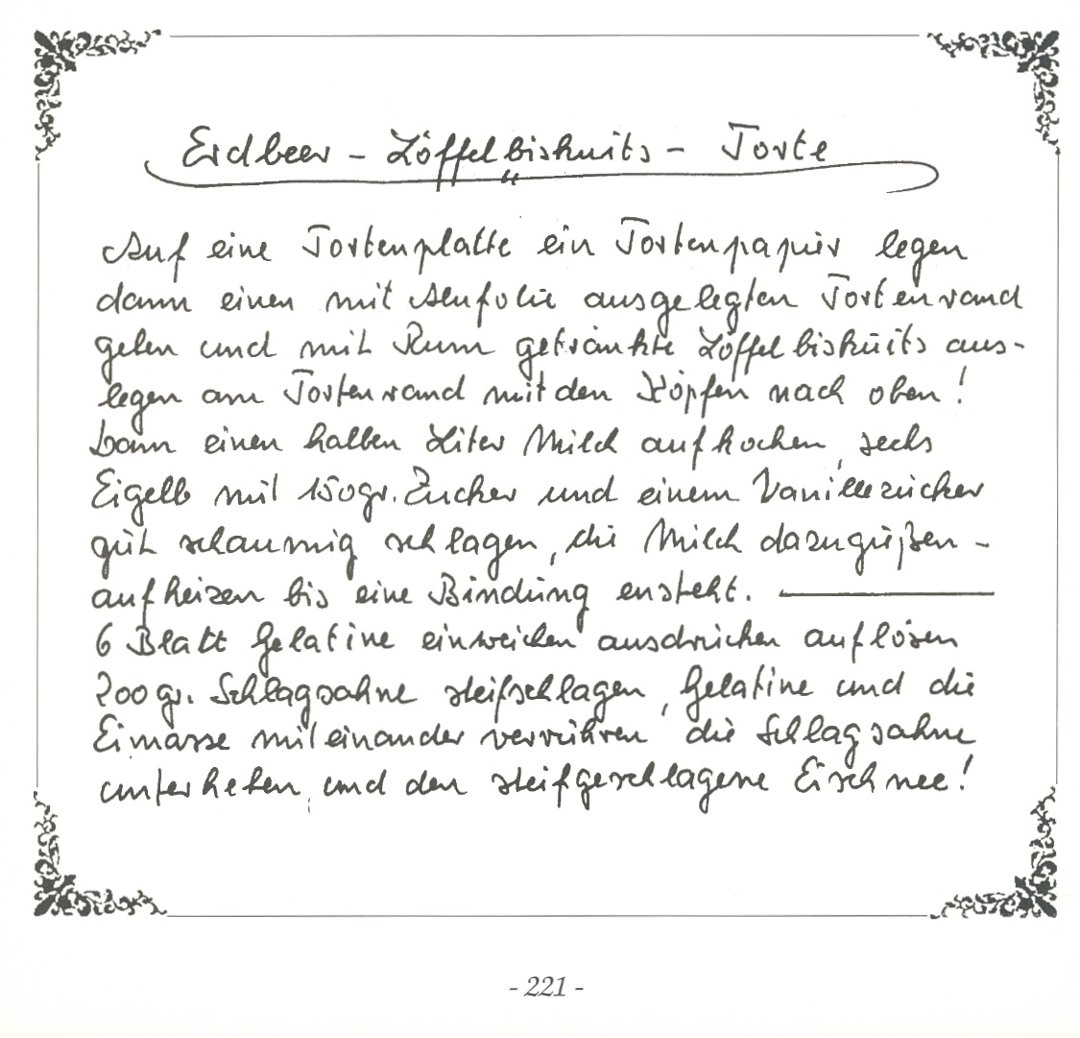 Erdbeer - Löffelbiskuits - Torte
"
Auf eine Tortenplatte ein Tortenpapier legen
dann einen mit Alufolie ausgelegten Tortenrand
geben und mit Rum getränkte Löffelbiskuits aus-
legen am Tortenrand mit den Köpfen nach oben!
Dann einen halben Liter Milch aufkochen, sechs
Eigelb mit 150gr. Zucker und einem Vanillezucker
gut schaumig schlagen, die Milch dazugießen -
aufheizen bis eine Bindung ensteht. ————
6 Blatt Gelatine einweichen ausdrücken auflösen
200 gr. Schlagsahne steifschlagen, Gelatine und die
Eimasse miteinander verrühren die Schlagsahne
unterheben, und den steifgeschlagene Eischnee!
- 221 -